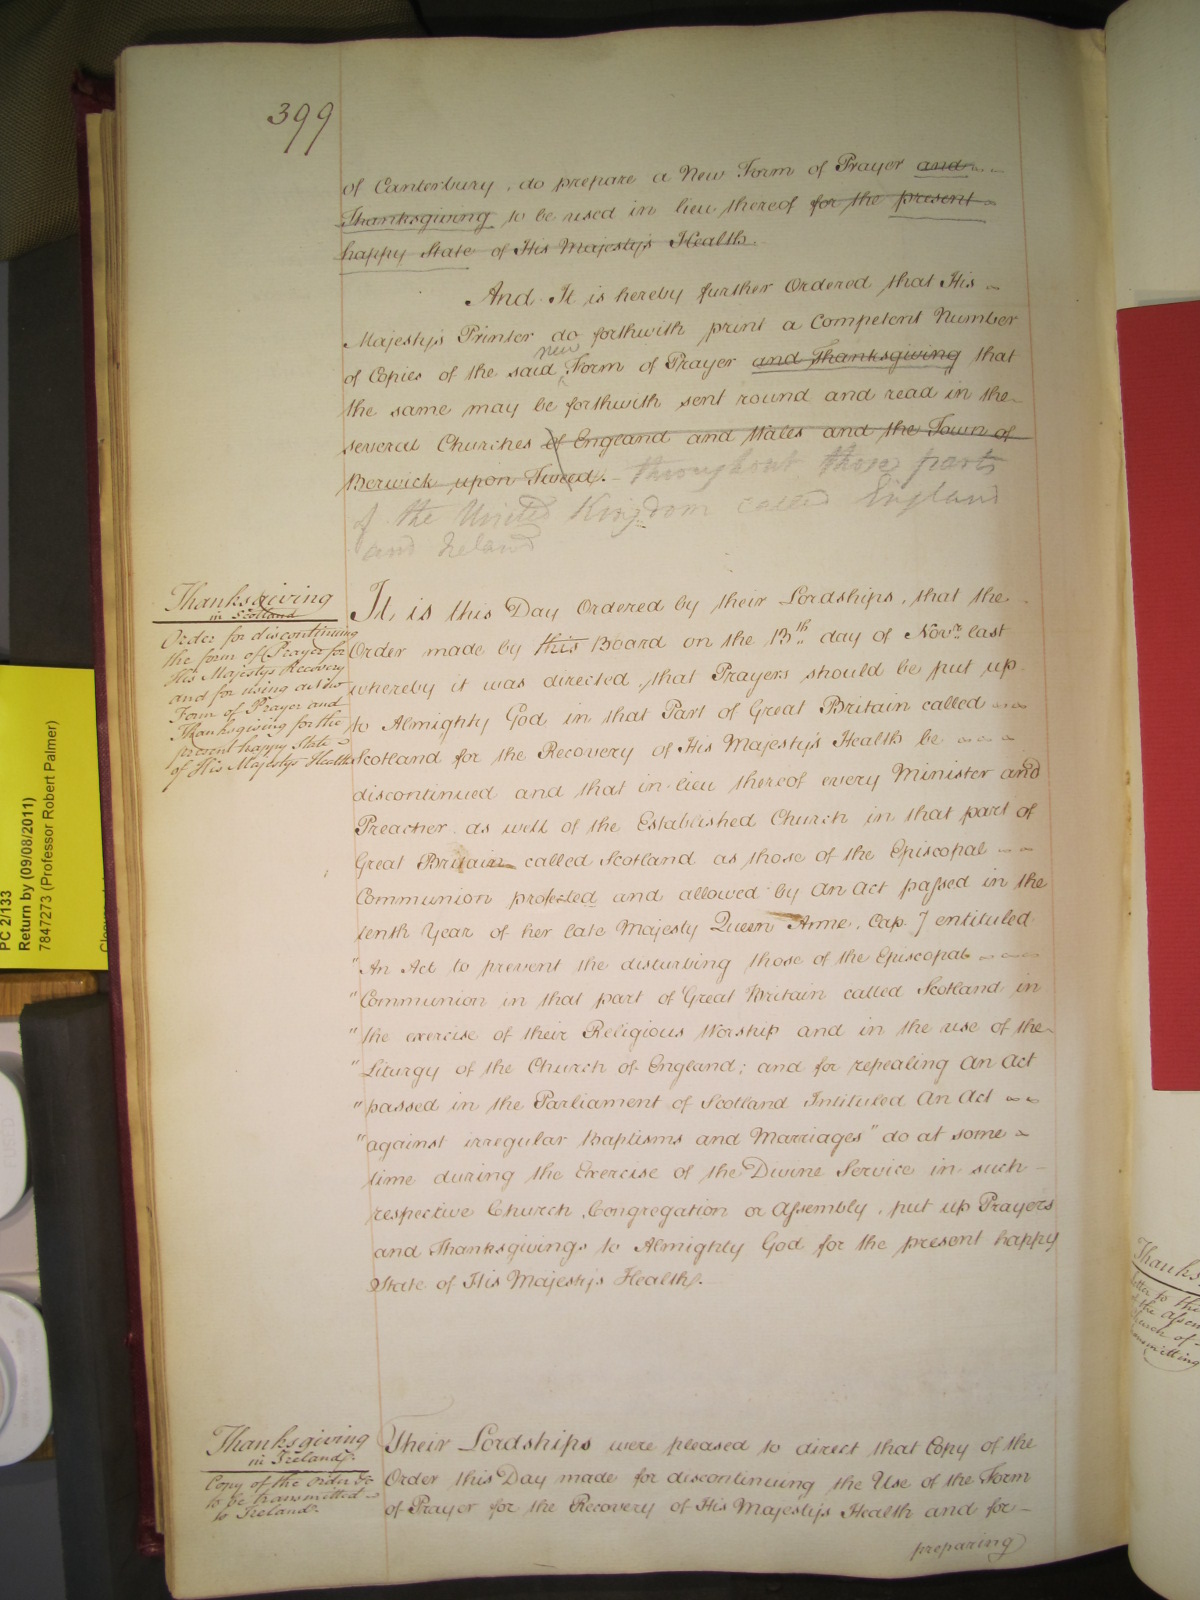 399
of Canterbury, do prepare a New Form of Prayer and
Thanksgiving to be used in lieu thereof for the present
happy State of His Majesty's Health.
And It is hereby further Ordered that His
Majesty's Printer do forthwith print a Competent Number
new
of Copies of the said Form of Prayer and Thanksgiving that
the same may be forthwith sent round and read in the
several Churches of England and Wales and the Town of
Berwick upon Tweed. throughout those parts
of the United Kingdom called England
and Ireland
Thanksgiving
in Scotland
Order for discontinuing
the form of Prayer for
His Majestys Recovery
and for using another
Form of Prayer and
Thanksgiving for the
present happy State
of His Majestys Health
It is this Day Ordered by their Lordships, that the
Order made by this Board on the 13th day of Novr. last
whereby it was directed, that Prayers should be put up
to Almighty God in that Part of Great Britain called
Scotland for the Recovery of His Majesty's Health be
discontinued and that in lieu thereof every Minister and
Preacher as well of the Established Church in that part of
Great Britain called Scotland as those of the Episcopal
Communion protected and allowed by An Act passed in the
tenth Year of her late Majesty Queen Anne, Cap. 7 entituled
"An Act to prevent the disturbing those of the Episcopal
"Communion in that part of Great Britain called Scotland in
"the exercise of their Religious Worship and in the use of the
"Liturgy of the Church of England; and for repealing An Act
"passed in the Parliament of Scotland Intituled An Act
"against irregular Baptisms and Marriages" do at some
time during the Exercise of the Divine Service in such
respective Church, Congregation or Assembly, put up Prayers
and Thanksgivings to Almighty God for the present happy
State of His Majesty's Health.
Thanksgiving
in Ireland.
Copy of the order &c
to be transmitted
to Ireland.
Their Lordships were pleased to direct that Copy of the
Order this Day made for discontinuing the Use of the Form
of Prayer for the Recovery of His Majesty's Health and for
preparing
PC 2/133
Return by (09/08/2011)
7847273 (Professor Robert Palmer)